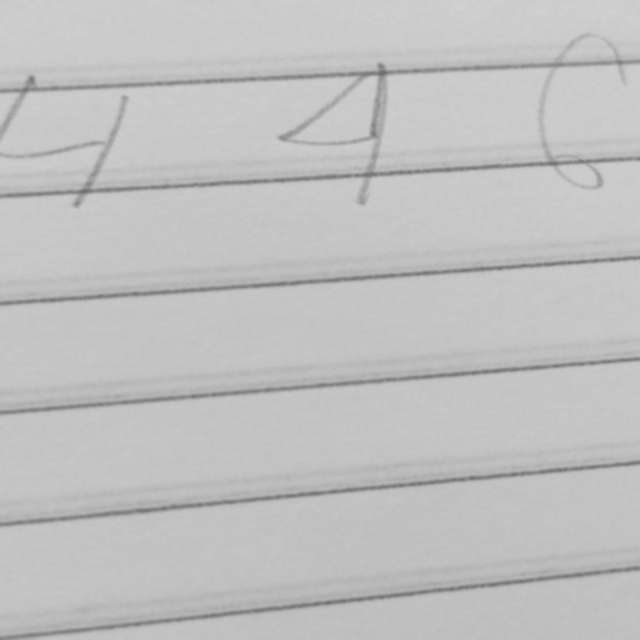 4 4 6